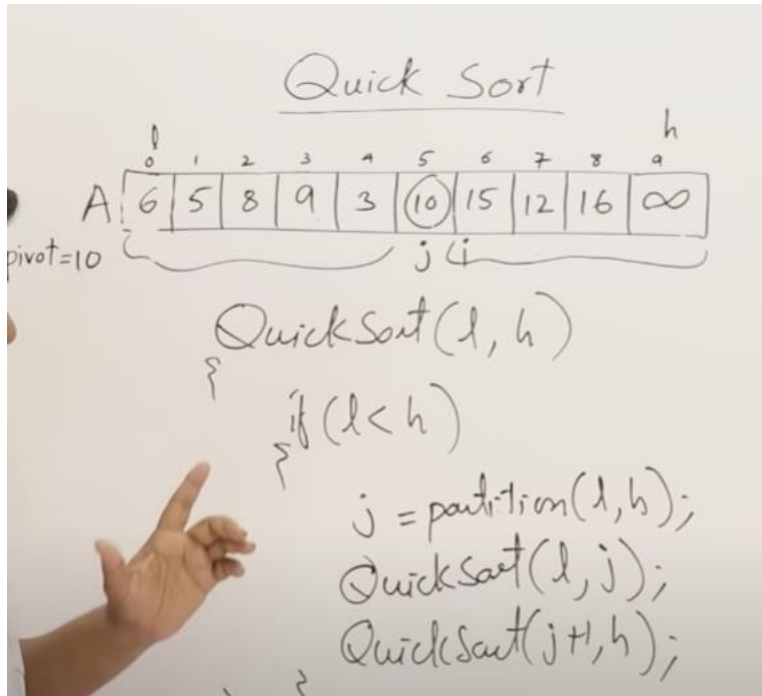 Quick Sort
l h
0 1 2 3 4 5 6 7 8 9
A 6 5 8 9 3 10 15 12 16 ∞
pivot=10 j i
QuickSort(l, h)
{
if (l < h)
{
j = partition(l, h);
QuickSort(l, j);
QuickSort(j+1, h);
}
}